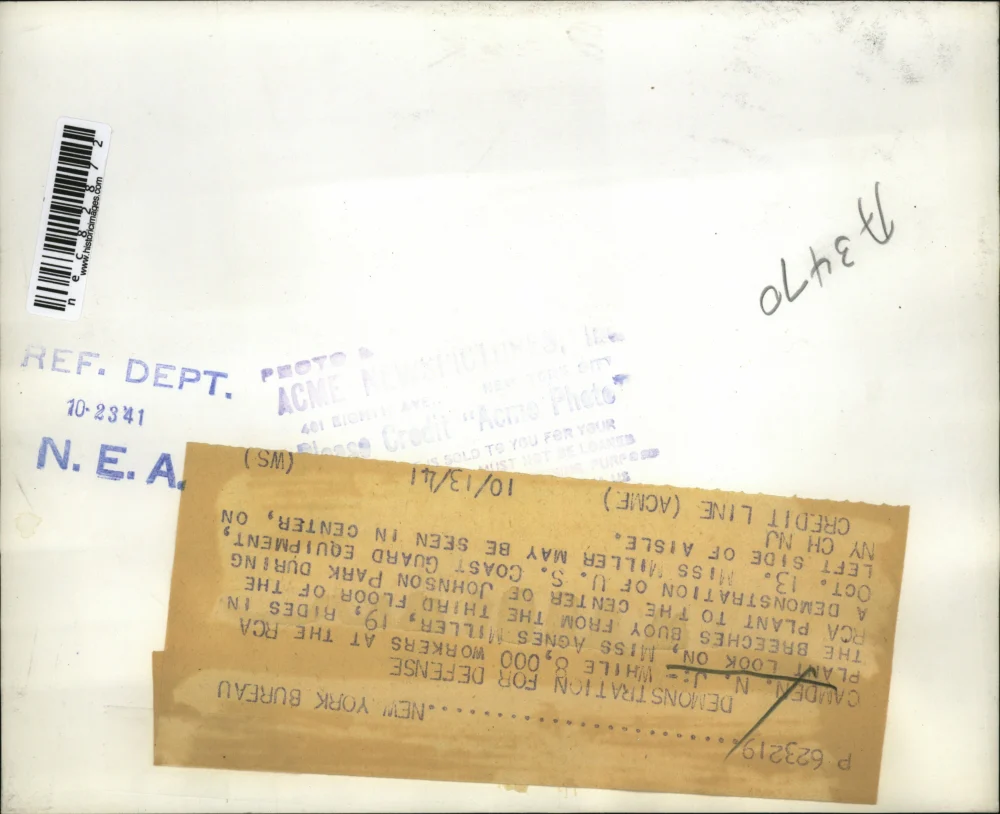 nec82872
www.historicimages.com
A3470
REF. DEPT.
10-23 41
N. E. A.
PHOTO
ACME NEWSPICTURES, INC
461 EIGHTH AVE. NEW YORK CITY
Please Credit "Acme Photo"
SOLD TO YOU FOR YOUR
MUST NOT BE LOANED
PURPOSE
P 623219................NEW YORK BUREAU
DEMONSTRATION FOR DEFENSE
CAMDEN, N. J.- WHILE 8,000 WORKERS AT THE RCA
PLANT LOOK ON, MISS AGNES MILLER, 19, RIDES IN
THE BREECHES BUOY FROM THE THIRD FLOOR OF THE
RCA PLANT TO THE CENTER OF JOHNSON PARK DURING
A DEMONSTRATION OF U. S. COAST GUARD EQUIPMENT,
OCT. 13. MISS MILLER MAY BE SEEN IN CENTER, ON
LEFT SIDE OF AISLE.
NY CH NJ
CREDIT LINE (ACME) 10/13/41 (WS)